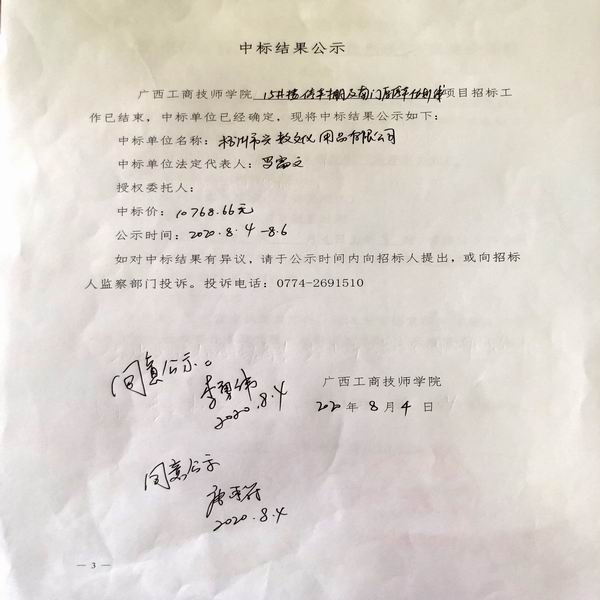 中标结果公示
广西工商技师学院 15#楼停车棚及南门 项目招标工
作已结束，中标单位已经确定，现将中标结果公示如下：
中标单位名称：梧州市兴教文化用品有限公司
中标单位法定代表人：罗富文
授权委托人：
中标价：10768.66元
公示时间：2020.8.4-8.6
如对中标结果有异议，请于公示时间内向招标人提出，或向招标
人监察部门投诉。投诉电话：0774-2691510
同意公示。
广西工商技师学院
李勇伟
2020.8.4
2020年8月4日
同意公示
2020.8.4
— 3 —